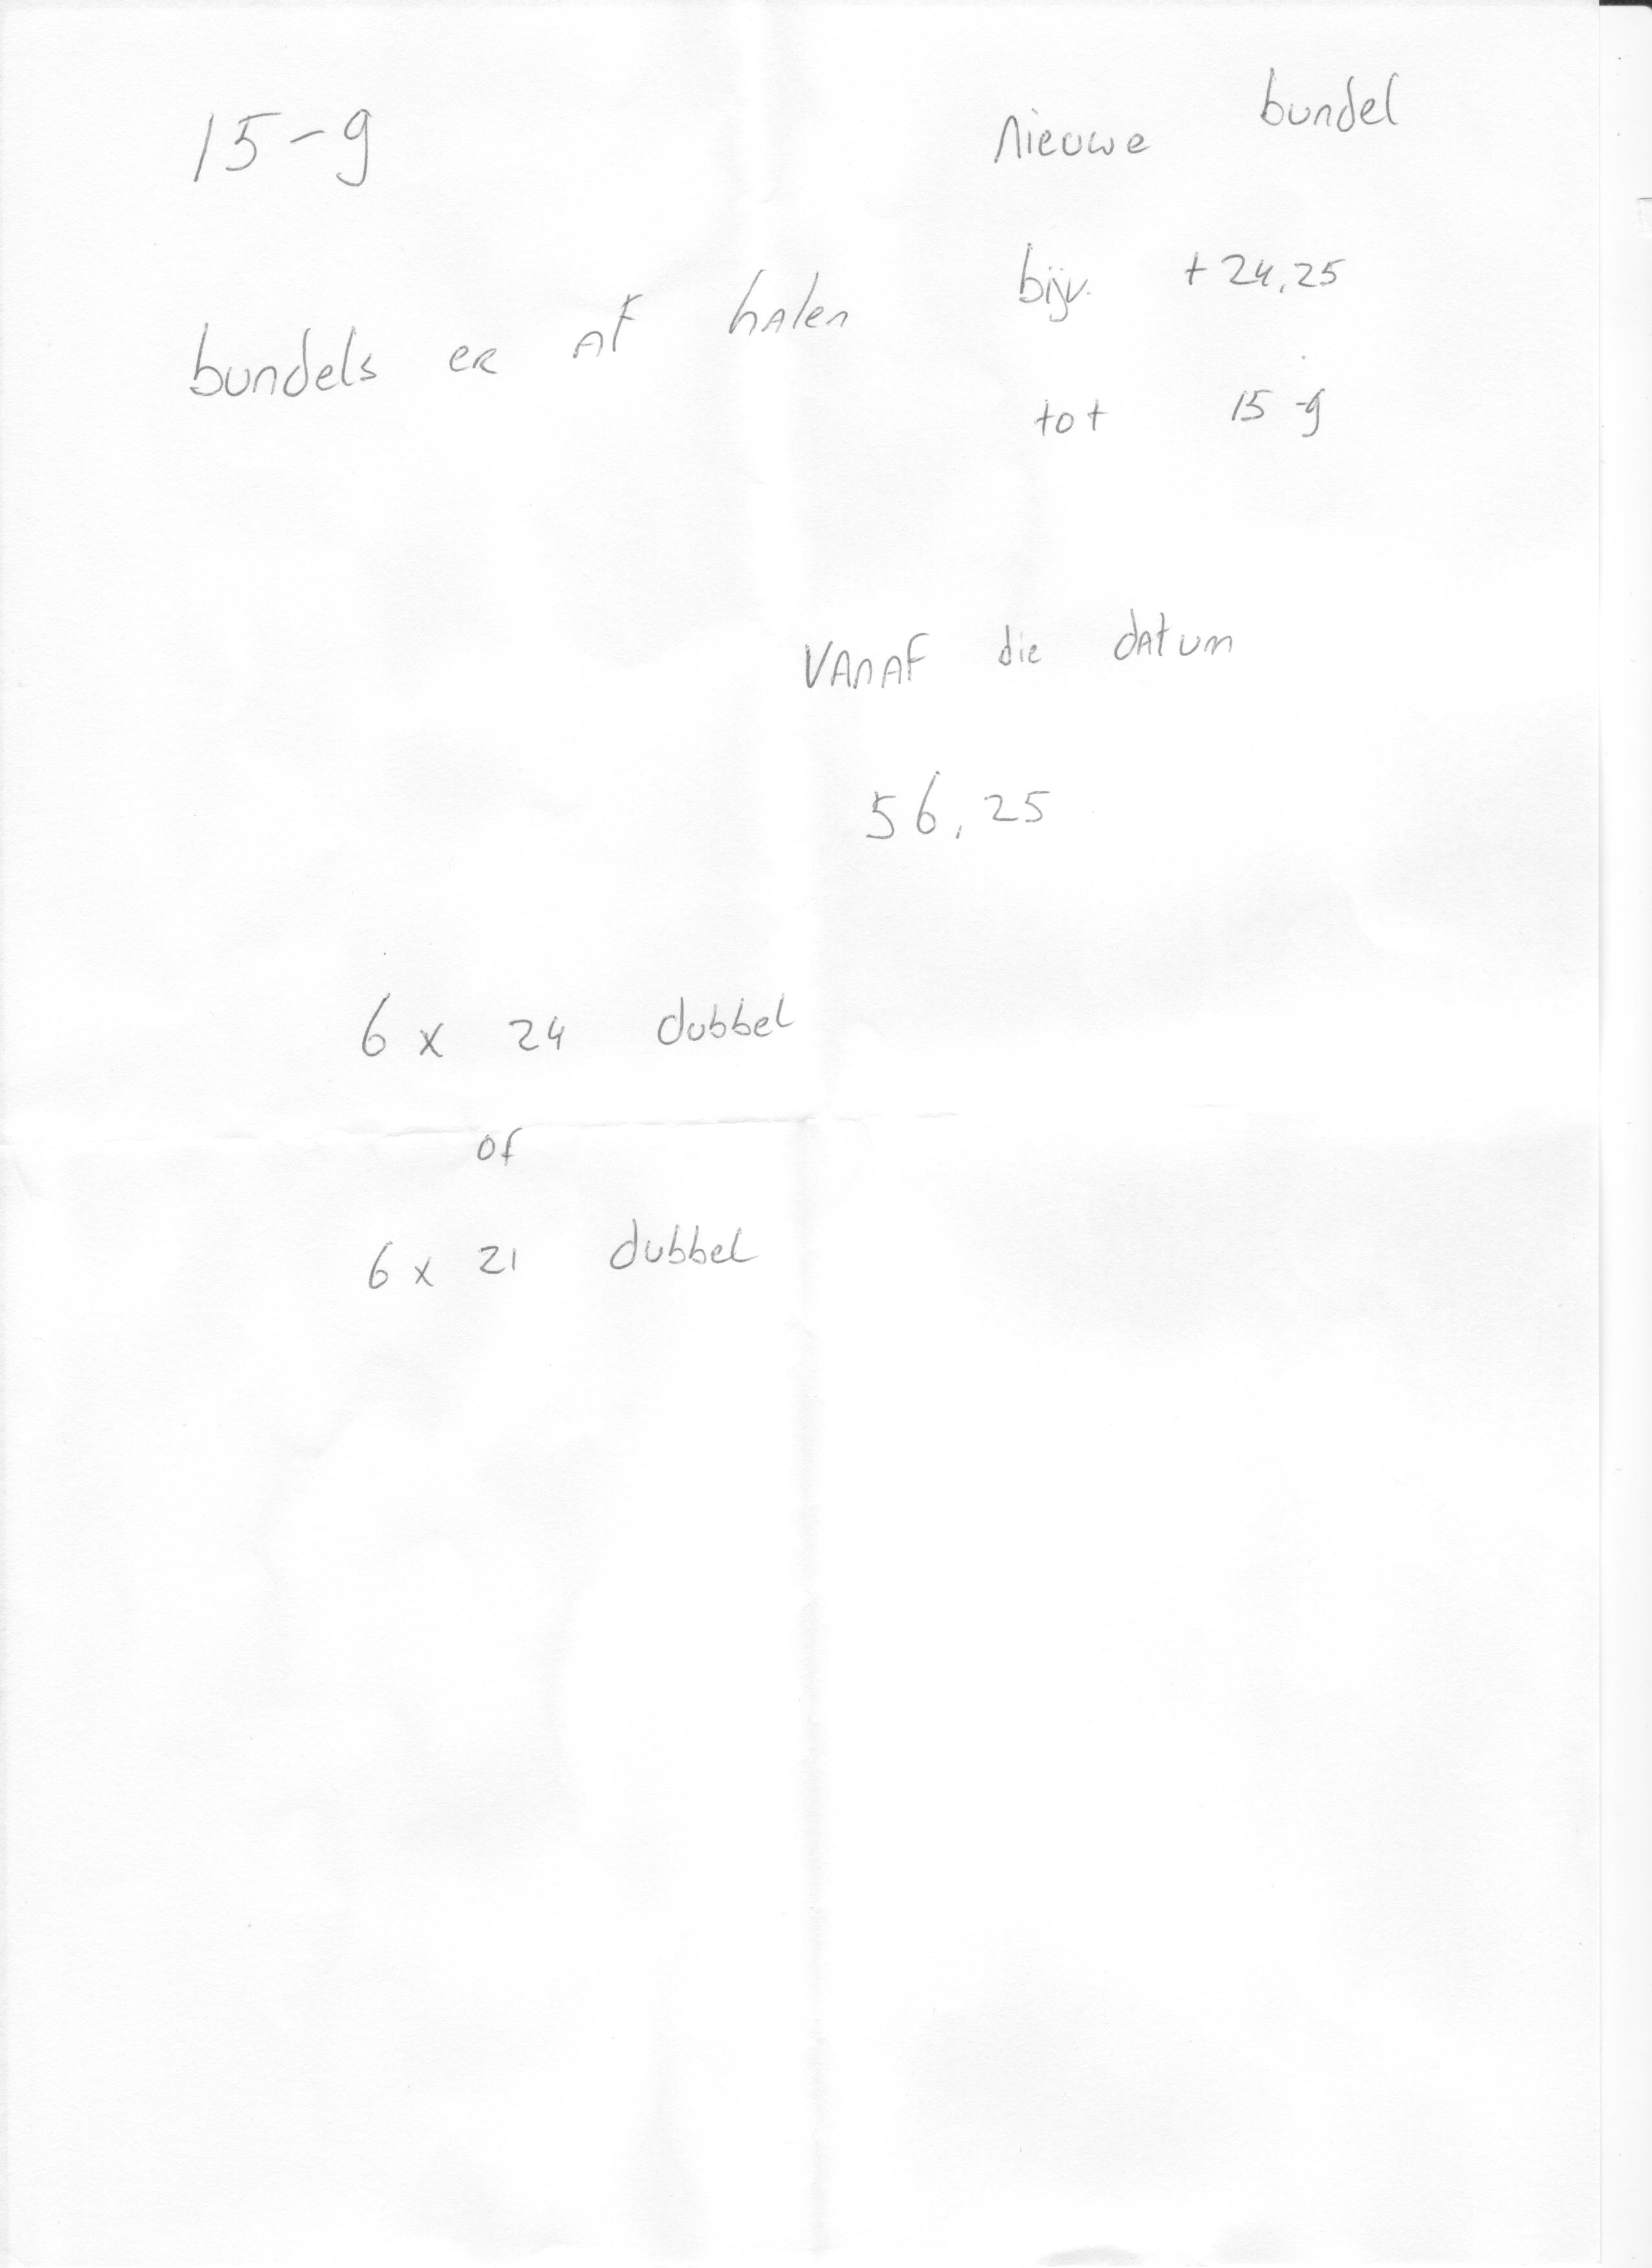 15-9
bundels er af halen
nieuwe bundel
bijv. + 24,25
tot 15-9
vanaf die datum
56,25
6 x 24 dubbel
of
6 x 21 dubbel